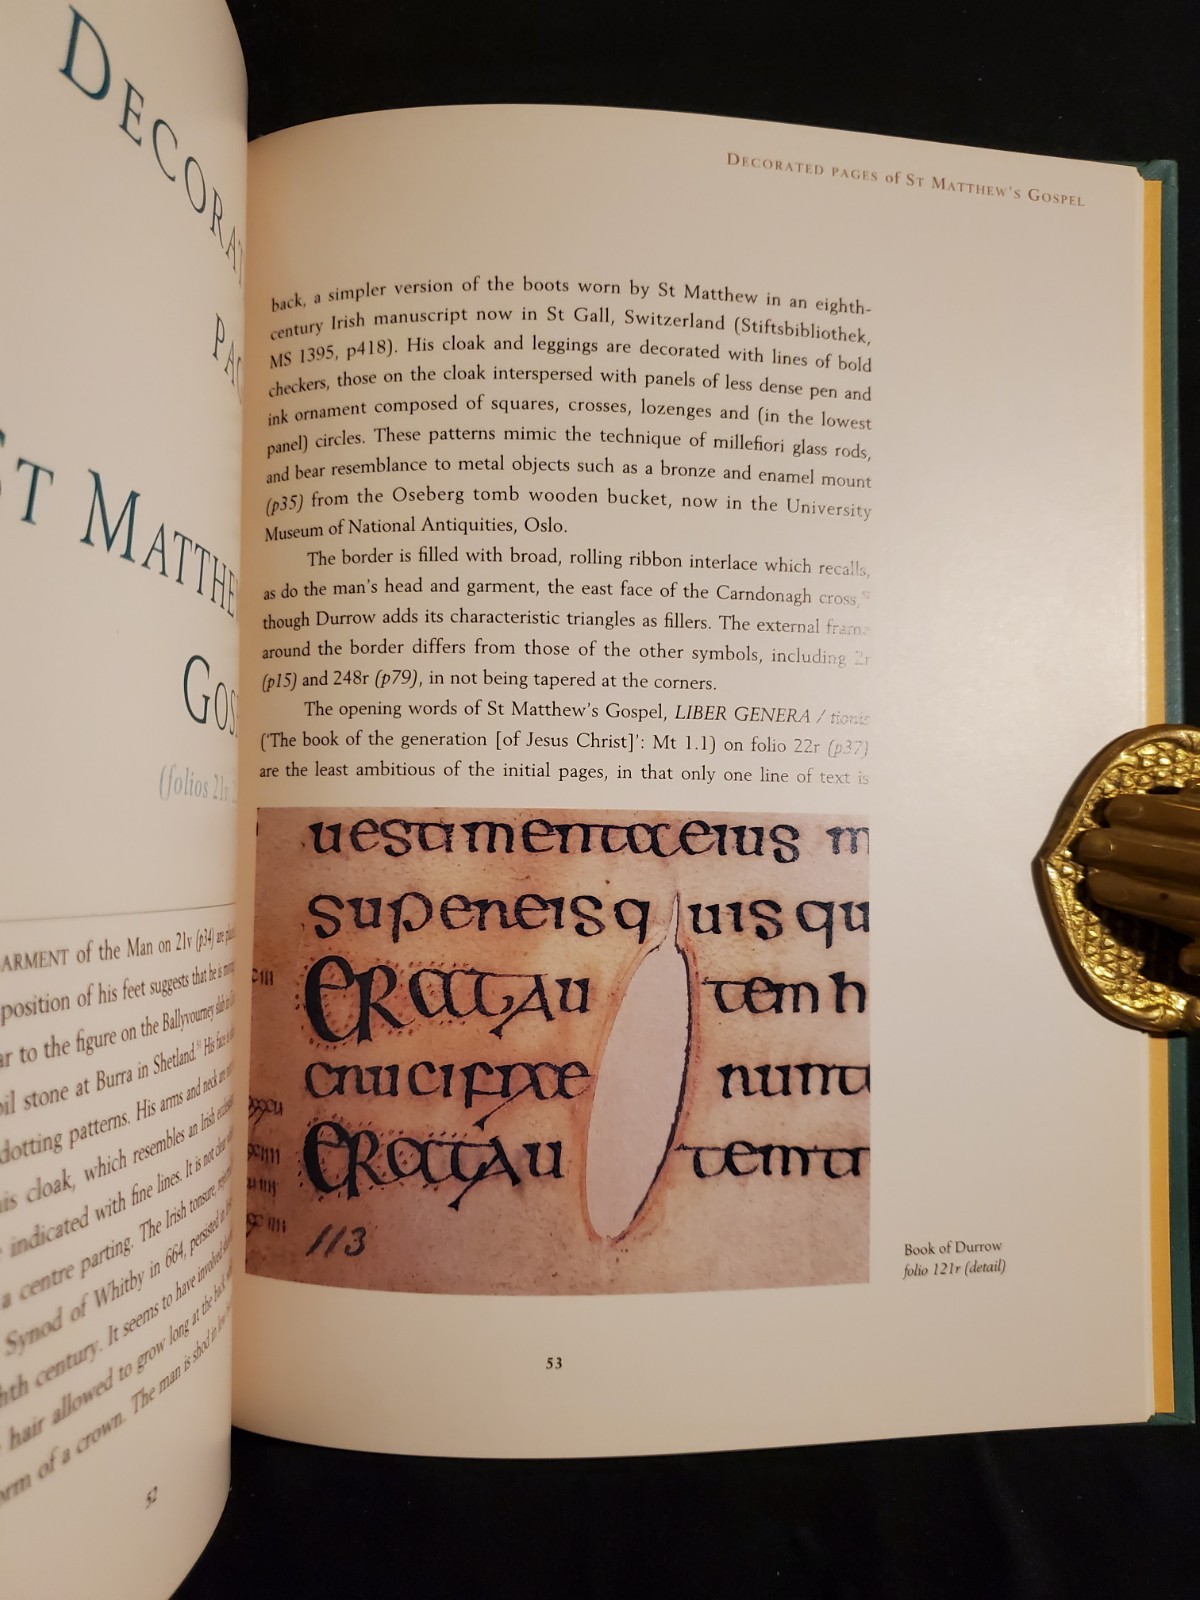 DECORAT
PA
ST MATTHE
GOS
(folios 21r
ARMENT of the Man on 21v (p34) are
position of his feet suggests that he is
ar to the figure on the Ballyvourney slab
oil stone at Burra in Shetland.⁵¹ His face is
dotting patterns. His arms and neck are
is cloak, which resembles an Irish
indicated with fine lines. It is not clear
a centre parting. The Irish tonsure,
Synod of Whitby in 664, persisted in
hth century. It seems to have involved
hair allowed to grow long at the back
orm of a crown. The man is shod in
52
DECORATED PAGES of ST MATTHEW'S GOSPEL
back, a simpler version of the boots worn by St Matthew in an eighth-
century Irish manuscript now in St Gall, Switzerland (Stiftsbibliothek,
MS 1395, p418). His cloak and leggings are decorated with lines of bold
checkers, those on the cloak interspersed with panels of less dense pen and
ink ornament composed of squares, crosses, lozenges and (in the lowest
panel) circles. These patterns mimic the technique of millefiori glass rods,
and bear resemblance to metal objects such as a bronze and enamel mount
(p35) from the Oseberg tomb wooden bucket, now in the University
Museum of National Antiquities, Oslo.
The border is filled with broad, rolling ribbon interlace which recalls,
as do the man's head and garment, the east face of the Carndonagh cross,
though Durrow adds its characteristic triangles as fillers. The external frame
around the border differs from those of the other symbols, including 2r
(p15) and 248r (p79), in not being tapered at the corners.
The opening words of St Matthew's Gospel, LIBER GENERA / tionis
('The book of the generation [of Jesus Christ]': Mt 1.1) on folio 22r (p37)
are the least ambitious of the initial pages, in that only one line of text is
uestimentaeius m
supereisq uisqu
ERATAU temh
crucifixe runt
ERATAU temti
113
Book of Durrow
folio 121r (detail)
53